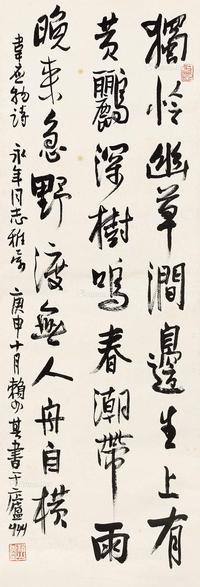 獨怜幽草澗邊生上有
黄鸝深樹鳴春潮帶雨
晚来急野渡無人舟自横
韋应物詩 永年同志雅属 庚申十月賴少其書于廬州